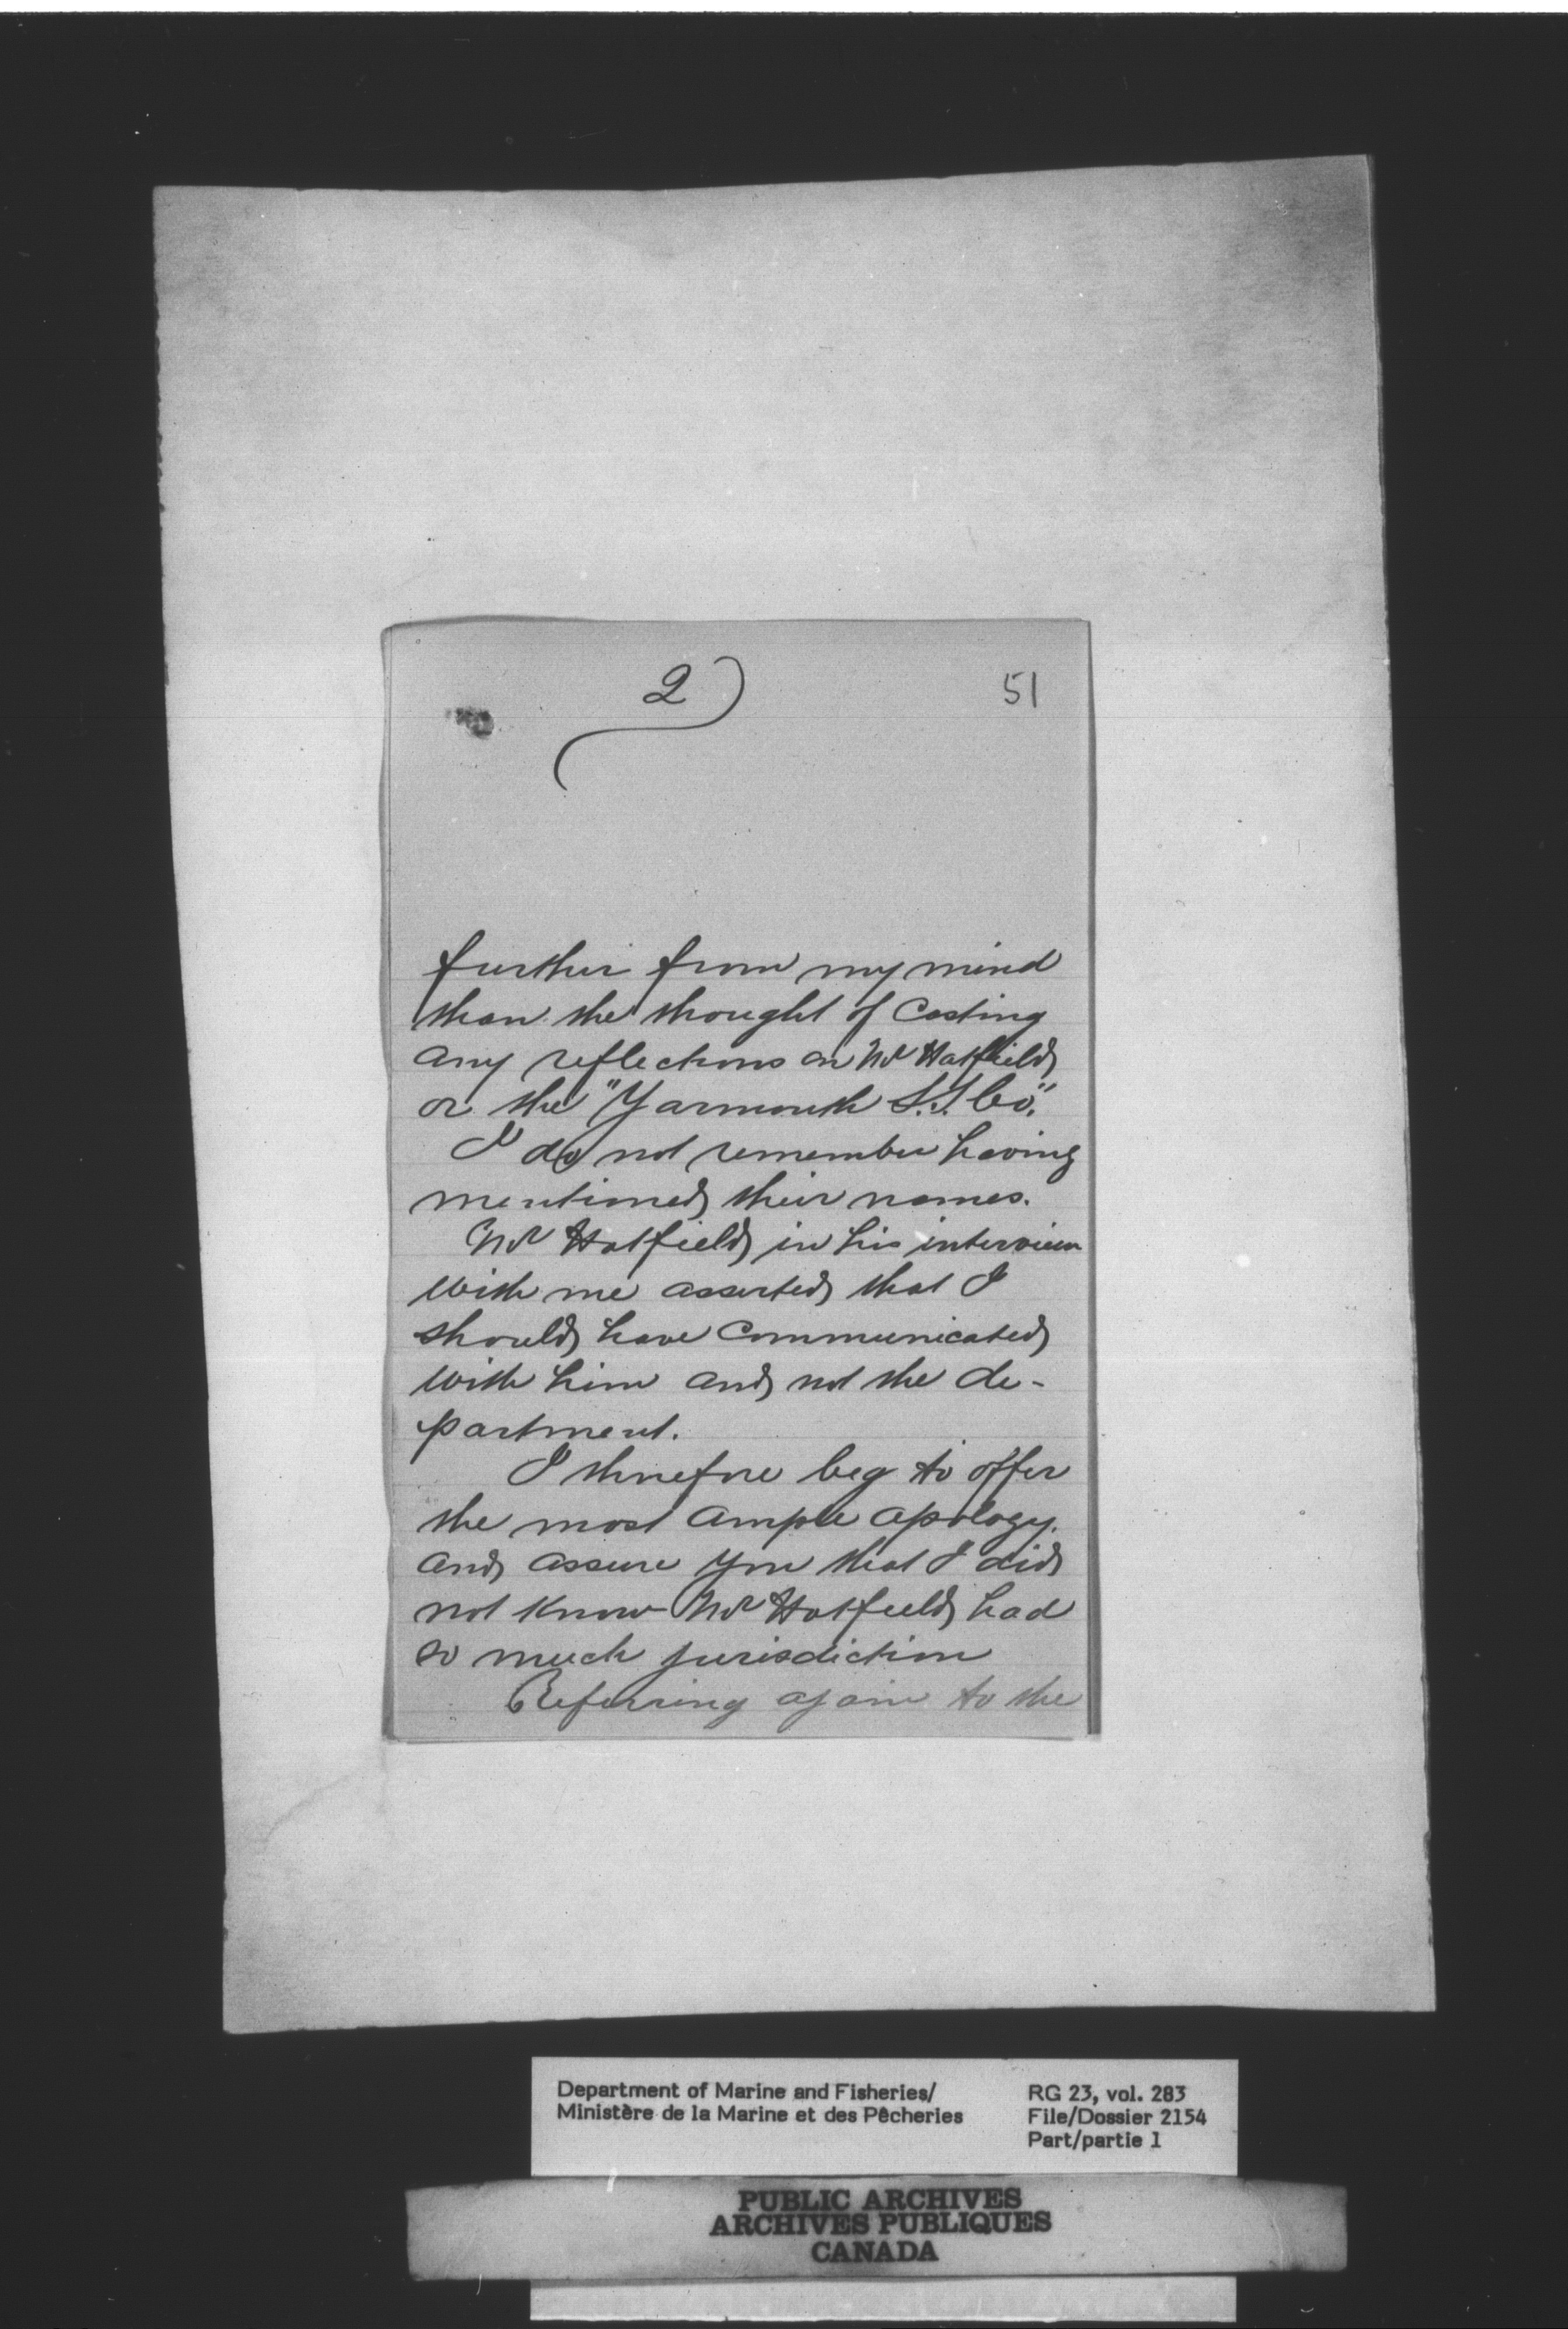 2)
51
further from my mind
than the thought of casting
any reflections on Mr Hatfield
or the "Yarmouth S.S. Co."
I do not remember having
mentioned their names.
Mr Hatfield in his interview
with me asserted that I
should have communicated
with him and not the de-
partment.
I therefore beg to offer
the most ample apology.
and assure you that I did
not know Mr Hatfield had
so much jurisdiction
Referring again to the
Department of Marine and Fisheries/
Ministère de la Marine et des Pêcheries
RG 23, vol. 283
File/Dossier 2154
Part/partie 1
PUBLIC ARCHIVES
ARCHIVES PUBLIQUES
CANADA